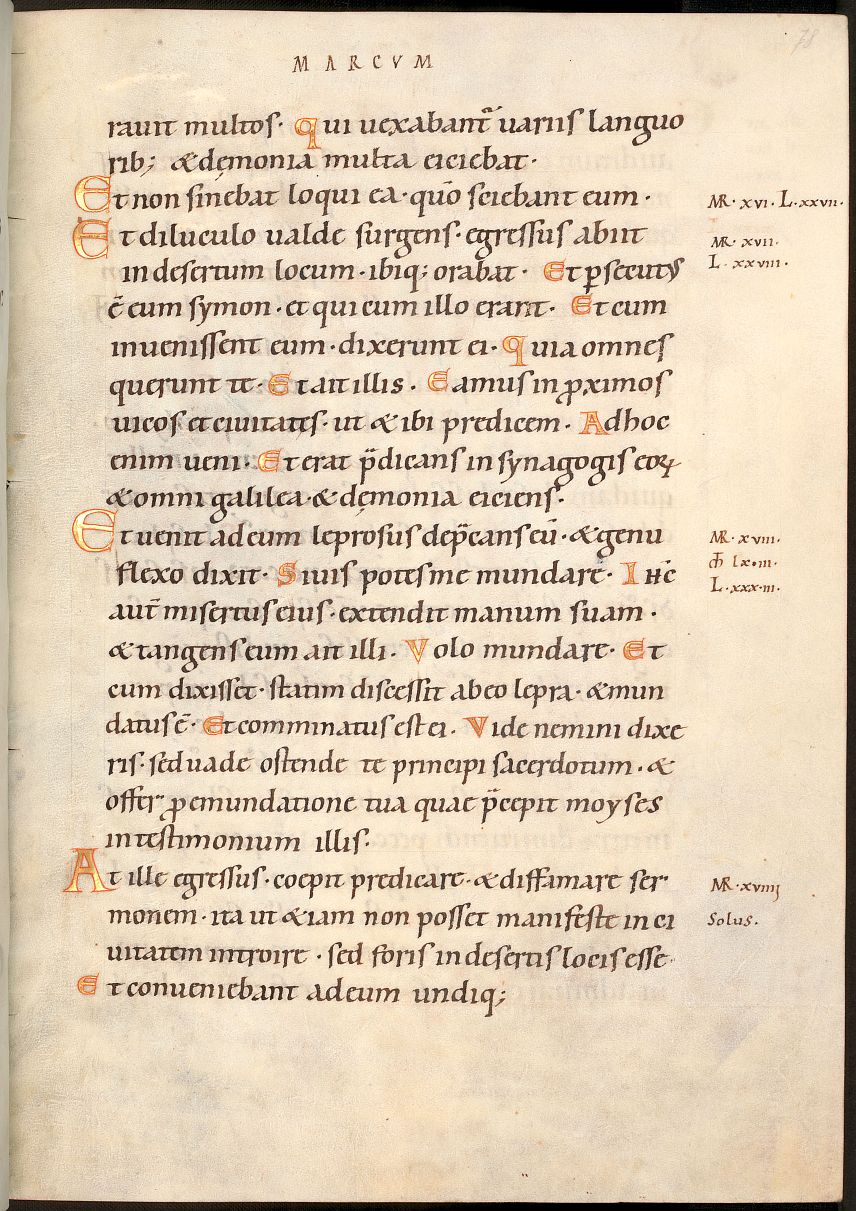 78
MARCVM
rauit multos· qui uexabant᷑ uariis languo
rib; &demonia multa eiciebat·
Et non sinebat loqui ea· quō sciebant eum·
MR· xvi· L·xxvii·
Et diluculo ualde surgens· egressus abiit
MR· xvii·
in desertum locum· ibiq; orabat· Et ꝑsecutus
L· xxviii·
ē eum symon· et qui cum illo erant· Et cum
inuenissent eum· dixerunt ei· Quia omnes
querunt te· Et ait illis· Eamus in ꝓximos
uicos et ciuitates· ut & ibi predicem· Ad hoc
enim ueni· Et erat p̄dicans in synagogis eoꝝ
& omni galilea· & demonia eiciens·
Et uenit ad eum leprosus dep̄cans eū· & genu
MR· xviii·
flexo dixit· Si uis potes me mundare· IHC̄
L·xxxiii·
aut̄ misertus eius· extendit manum suam·
& tangens eum ait illi· Volo mundare· Et
cum dixisset· statim discessit ab eo lepra· & mun
datus ē· Et comminatus est ei· Vide nemini dixe
ris· sed uade ostende te principi sacerdotum· &
offer ꝓ emundatione tua quae p̄cepit moyses
in testimonium illis·
At ille egressus· coepit predicare· & diffamare ser
MR· xviiij
monem· ita ut & iam non posset manifeste in ci
Solus·
uitatem introire· sed foris in desertis locis esse·
Et conueniebant ad eum undiq;